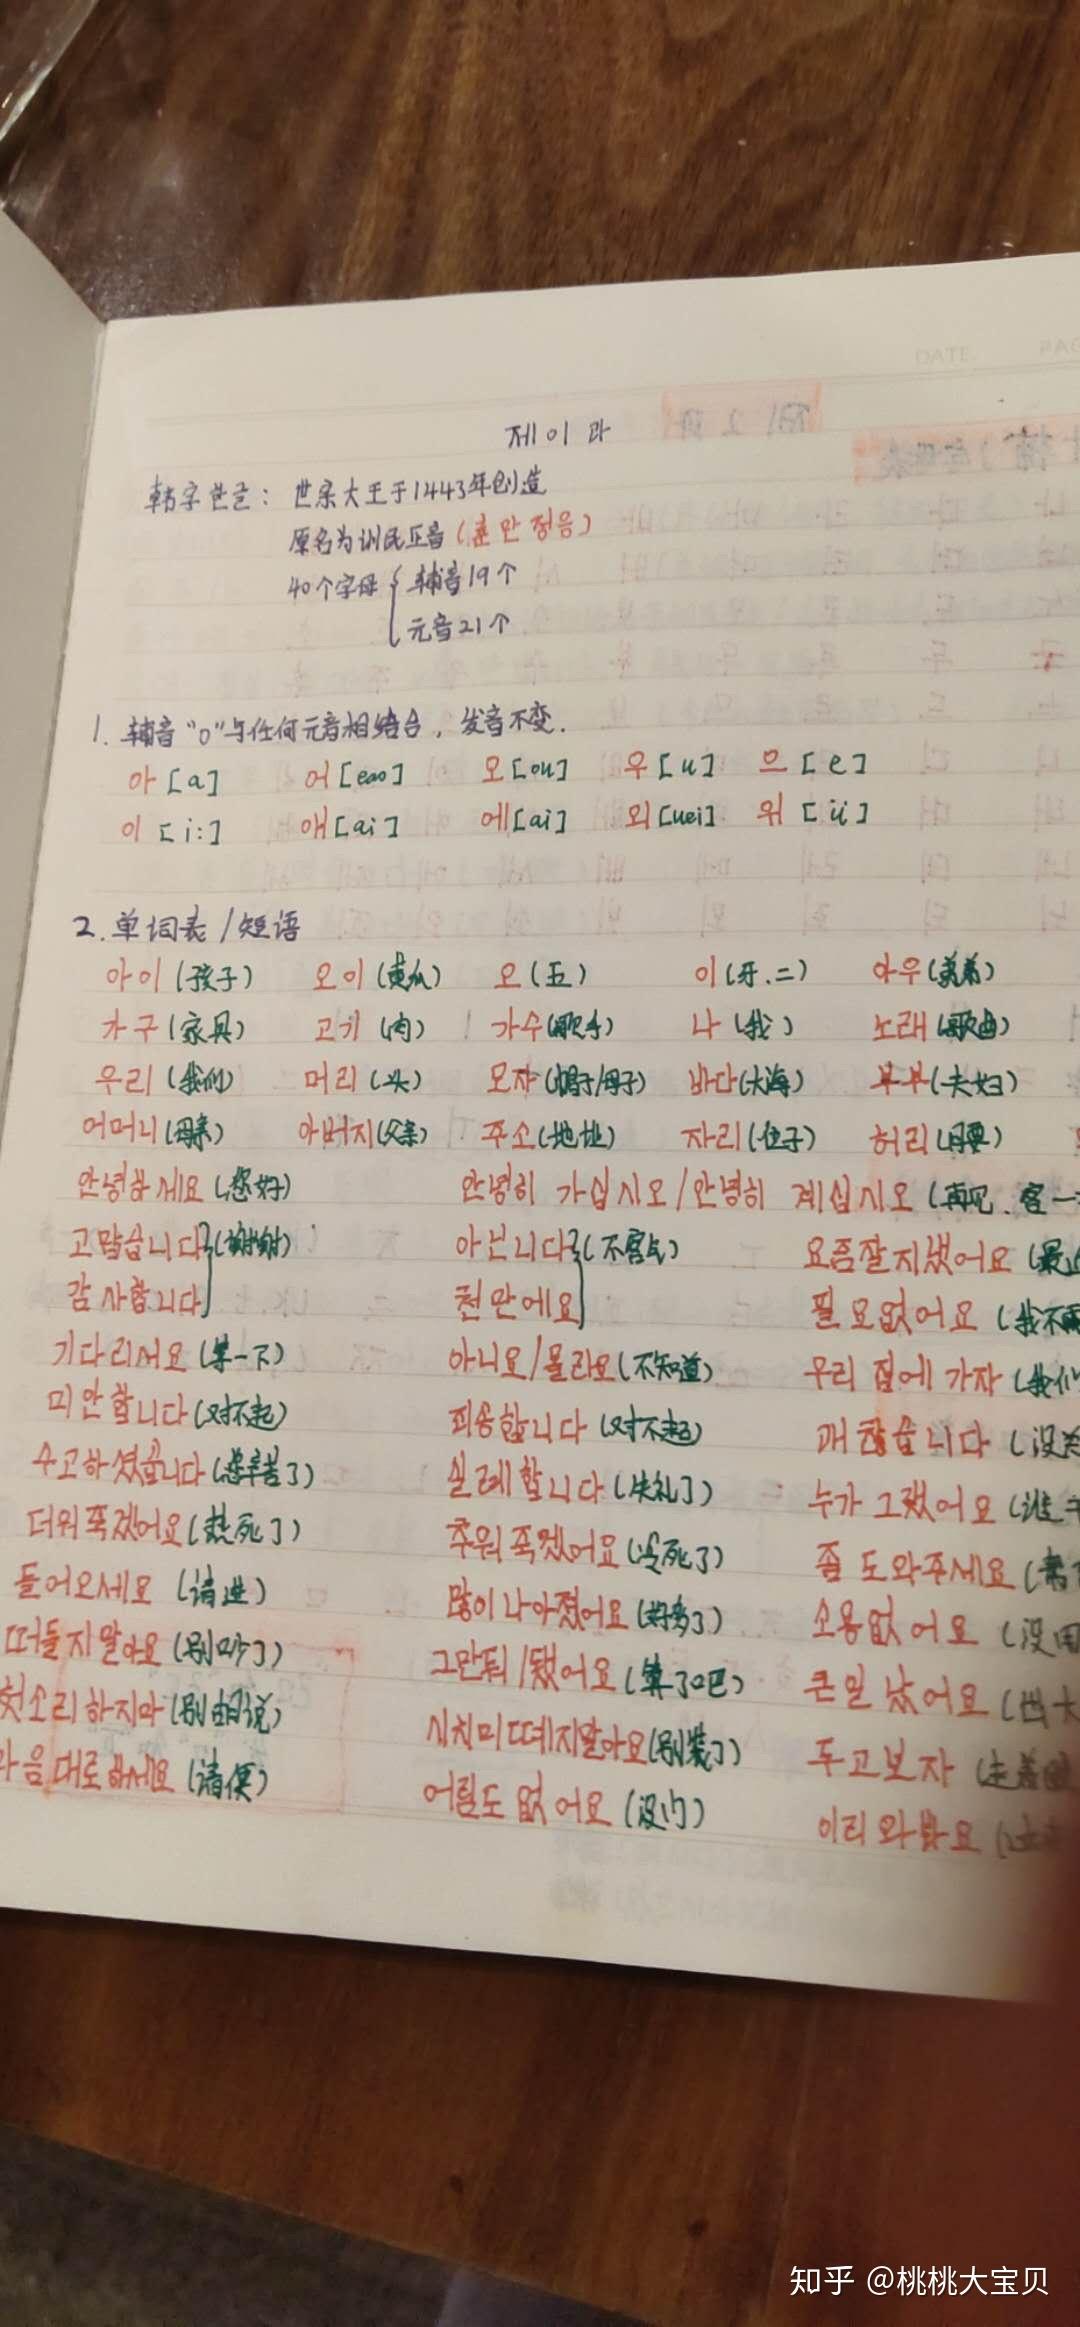 DATE. PAG
제이과
韩字한글: 世宗大王于1443年创造
原名为训民正音(훈민정음)
40个字母{ 辅音19个
元音21个
1. 辅音"o"与任何元音相结合, 发音不变.
아 [a] 어 [eao] 오 [ou] 우 [u] 으 [e]
이 [i:] 애 [ai] 에 [ai] 외 [uei] 위 [ü]
2. 单词表/短语
아이(孩子) 오이(黄瓜) 오(五) 이(牙.二) 아우(弟弟)
가구(家具) 고기(肉) 가수(歌手) 나(我) 노래(歌曲)
우리(我们) 머리(头) 모자(帽子/母子) 바다(大海) 부부(夫妇)
어머니(母亲) 아버지(父亲) 주소(地址) 자리(位子) 허리(腰)
안녕하세요(您好) 안녕히 가십시오/안녕히 계십시오(再见.客一
고맙습니다}(谢谢) 아닙니다}(不客气) 요즘잘지냈어요(最近
감사합니다 천만에요 필요없어요(我不需
기다리서요(等一下) 아니요/몰라요(不知道) 우리 집에 가자(我们
미안합니다(对不起) 죄송합니다(对不起) 괜찮습니다(没关
수고하셨습니다(您辛苦了) 실례합니다(失礼了) 누가 그랬어요(谁干
더워죽겠어요(热死了) 추워죽겠어요(冷死了) 좀 도와주세요(帮
들어오세요(请进) 많이나아졌어요(好多了) 소용없어요(没用
떠들지말아요(别吵了) 그만둬/됐어요(算了吧) 큰일 났어요(出大
헛소리하지마(别胡说) 시치미떼지말아요(别装了) 두고보자(走着瞧
마음대로하세요(请便) 어림도 없어요(没门) 이리 와봐요
知乎 @桃桃大宝贝